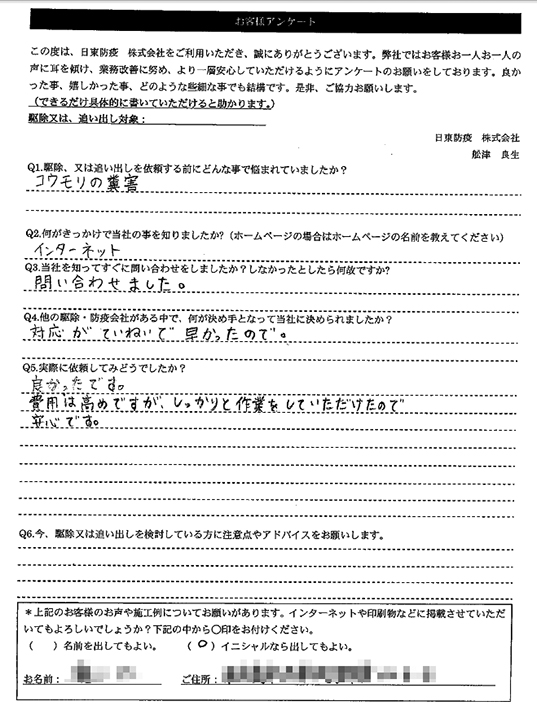 お客様アンケート
この度は、日東防疫　株式会社をご利用いただき、誠にありがとうございます。弊社ではお客様お一人お一人の
声に耳を傾け、業務改善に努め、より一層安心していただけるようにアンケートのお願いをしております。良か
った事、嬉しかった事、どのような些細な事でも結構です。是非、ご協力お願いします。
（できるだけ具体的に書いていただけると助かります。）
駆除又は、追い出し対象：
日東防疫　株式会社
舩津　良生
Q1.駆除、又は追い出しを依頼する前にどんな事で悩まれていましたか？
コウモリの糞害
Q2.何がきっかけで当社の事を知りましたか？（ホームページの場合はホームページの名前を教えてください）
インターネット
Q3.当社を知ってすぐに問い合わせをしましたか？しなかったとしたら何故ですか？
問い合わせました。
Q4.他の駆除・防疫会社がある中で、何が決め手となって当社に決められましたか？
対応がていねいで早かったので。
Q5.実際に依頼してみどうでしたか？
良かったです。
費用は高めですが、しっかりと作業をしていただけたので
安心です。
Q6.今、駆除又は追い出しを検討している方に注意点やアドバイスをお願いします。
＊上記のお客様のお声や施工例についてお願いがあります。インターネットや印刷物などに掲載させていただ
いてもよろしいでしょうか？下記の中から〇印をお付けください。
（　　）名前を出してもよい。　　（ ○ ）イニシャルなら出してもよい。
お名前：　　ご住所：